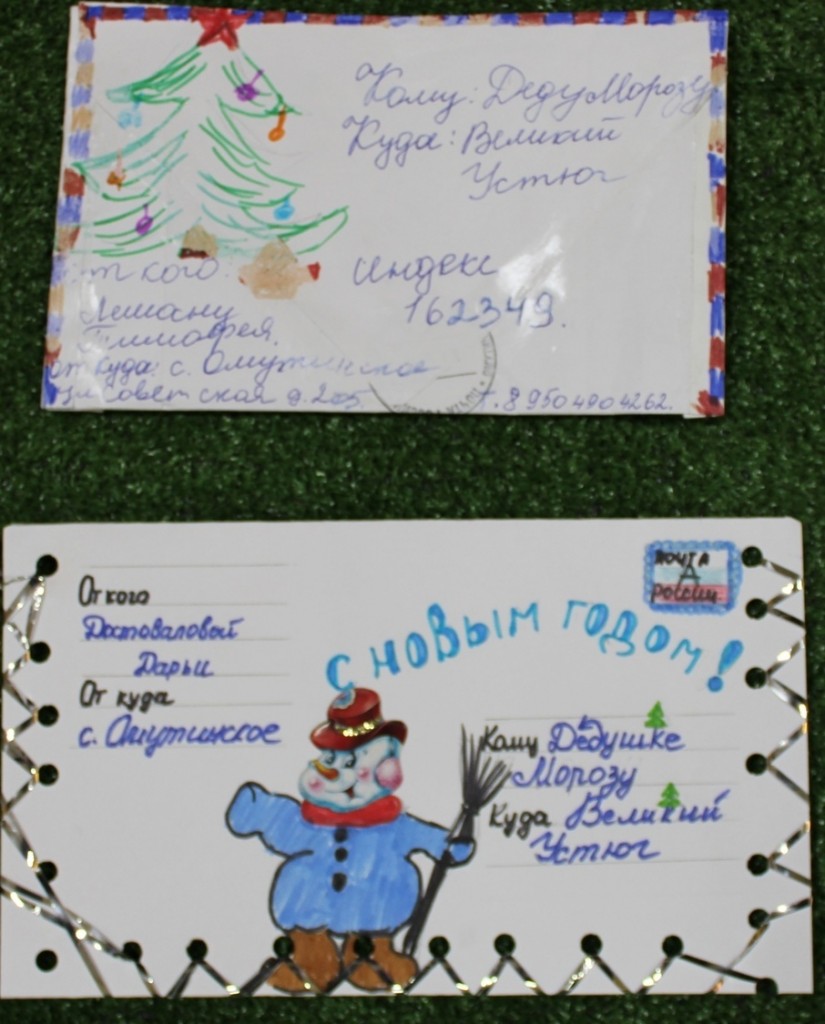 Кому: Деду Морозу
Куда: Великий
Устюг
индекс
162349.
от кого.
Лешану
Тимофея.
от куда: с. Омутинское
ул Советская д. 205.
т. 89504904262.
От кого
Достоваловой
Дарьи
От куда
с. Омутинское
С НОВЫМ ГОДОМ!
ПОЧТА
А
РОССИИ
Кому Дедушке
Морозу
Куда Великий
Устюг